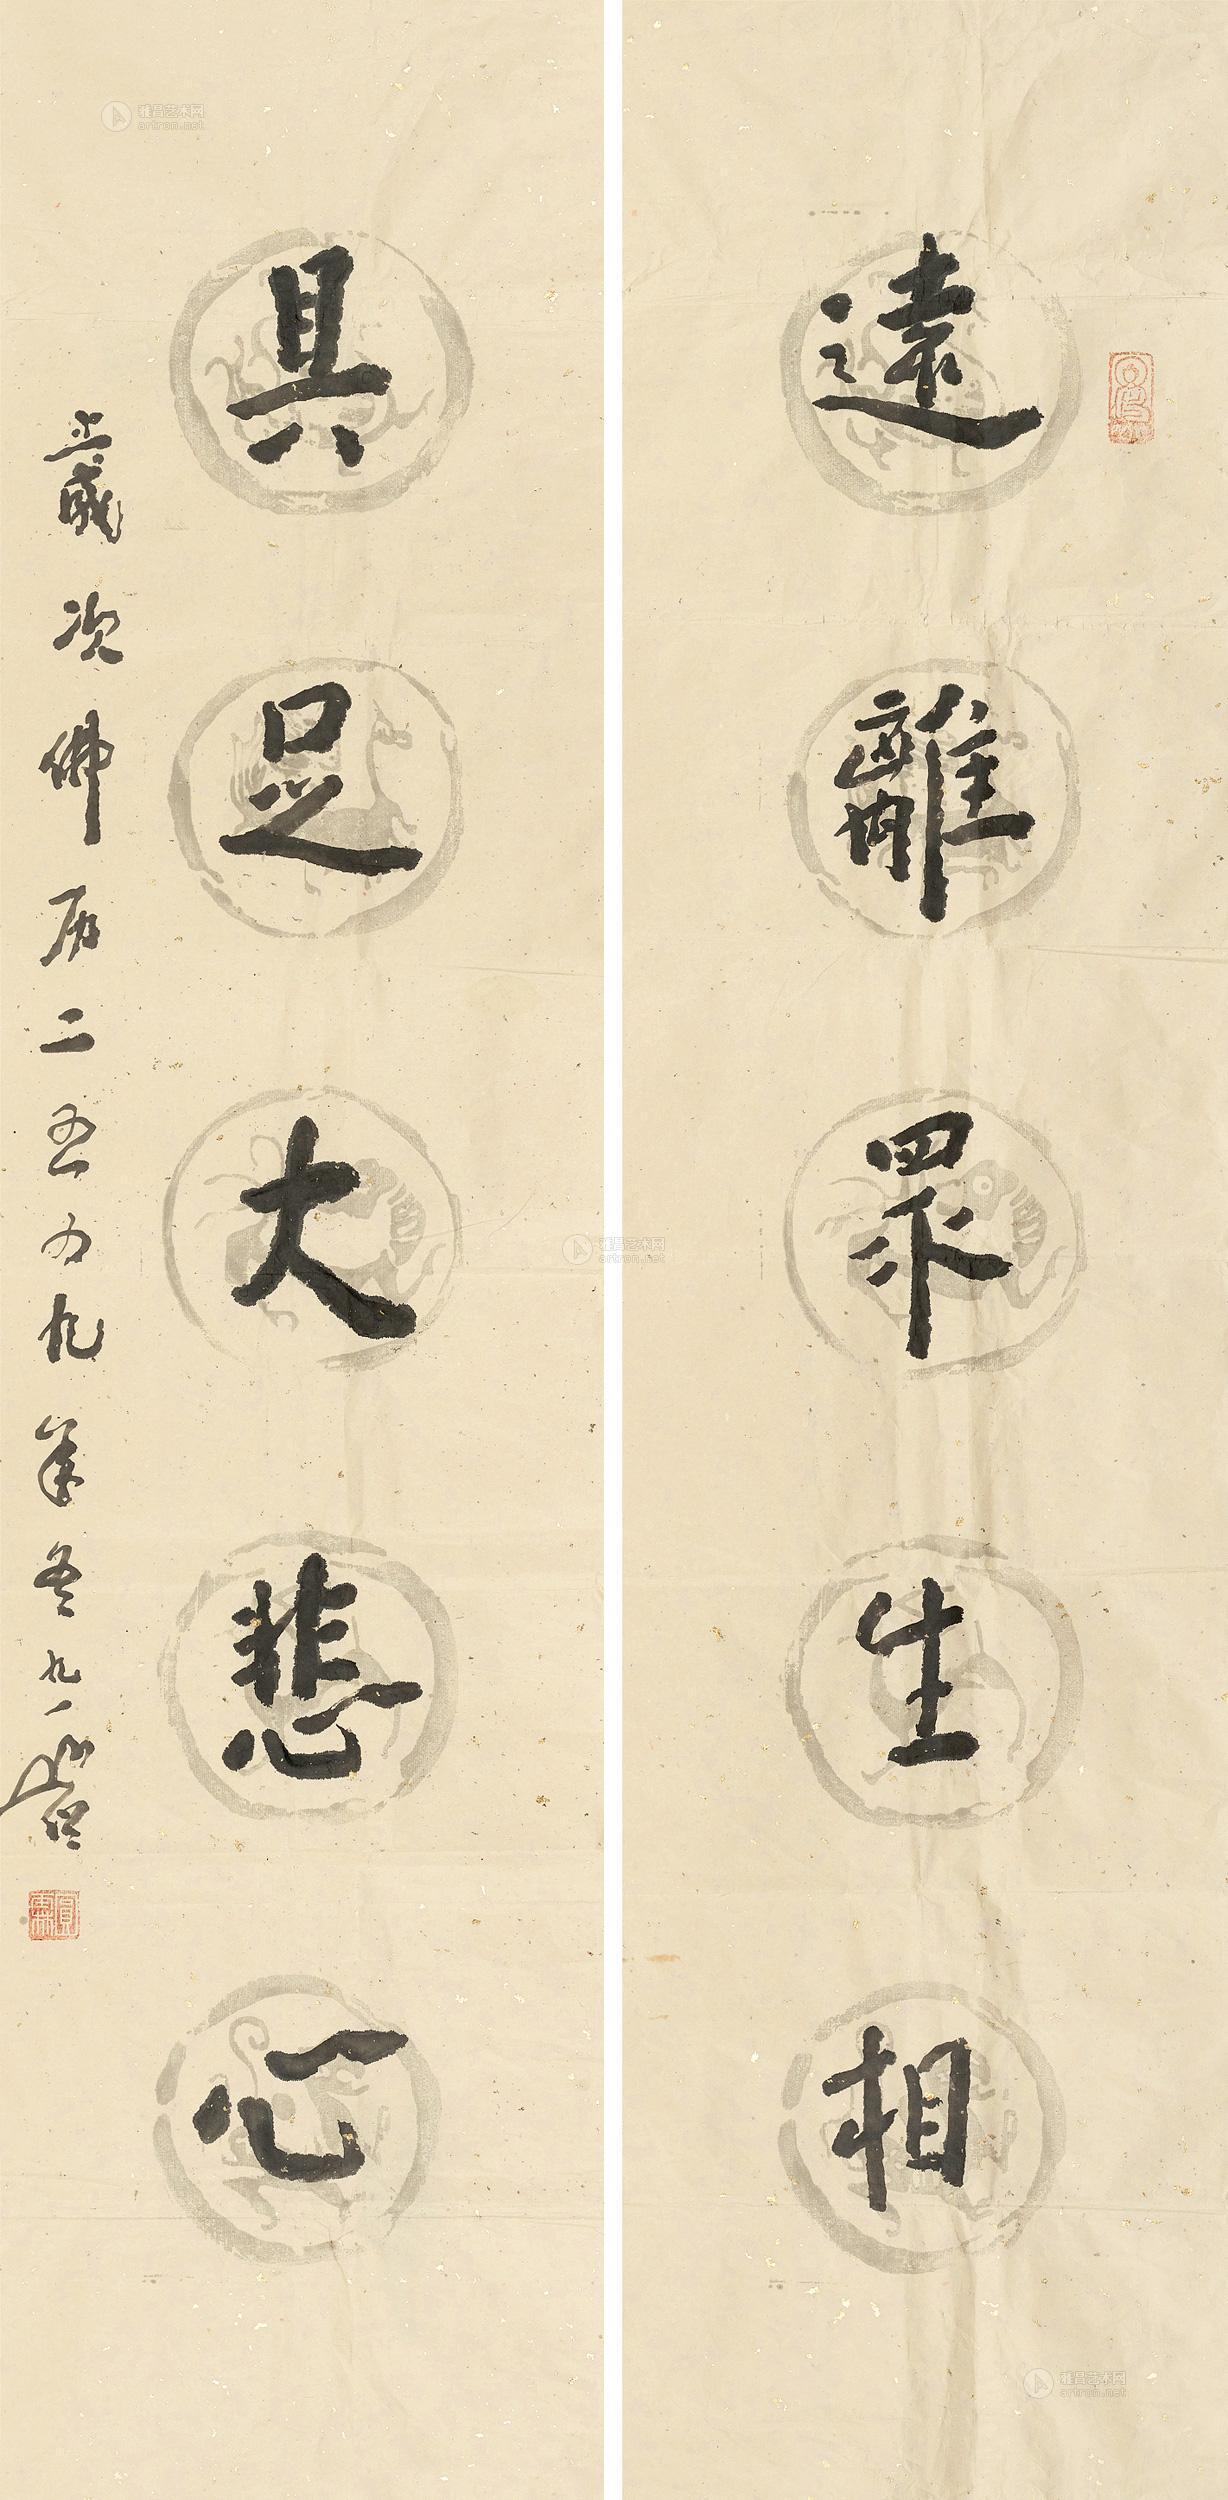 遠離眾生相
具足大悲心
歲次佛历二五
九年
雅昌艺术网
artron.net
雅昌艺术网
artron.net
雅昌艺术网
artron.net